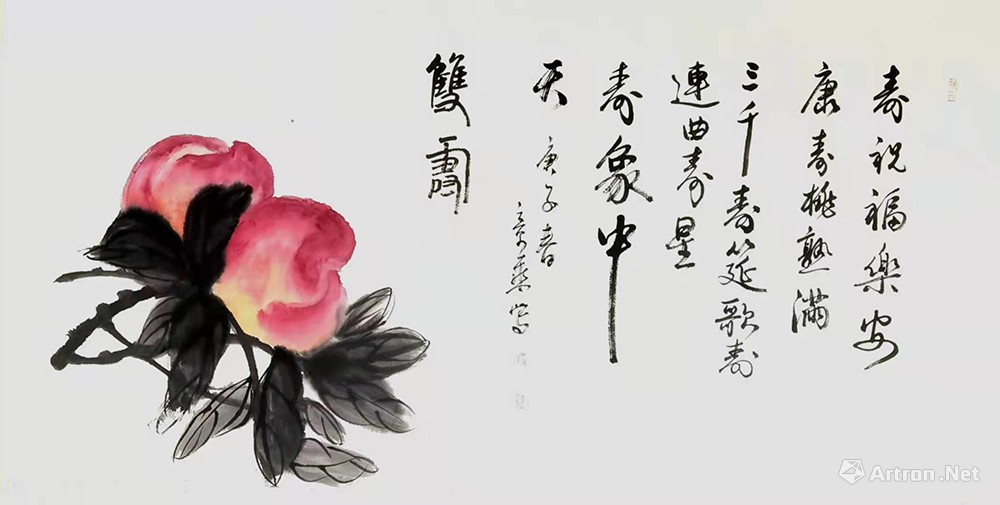 寿祝福樂安
康寿桃熟滿
三千寿筵歌寿
連曲寿星
寿象中
天 庚子春
寫
雙
Artron.Net